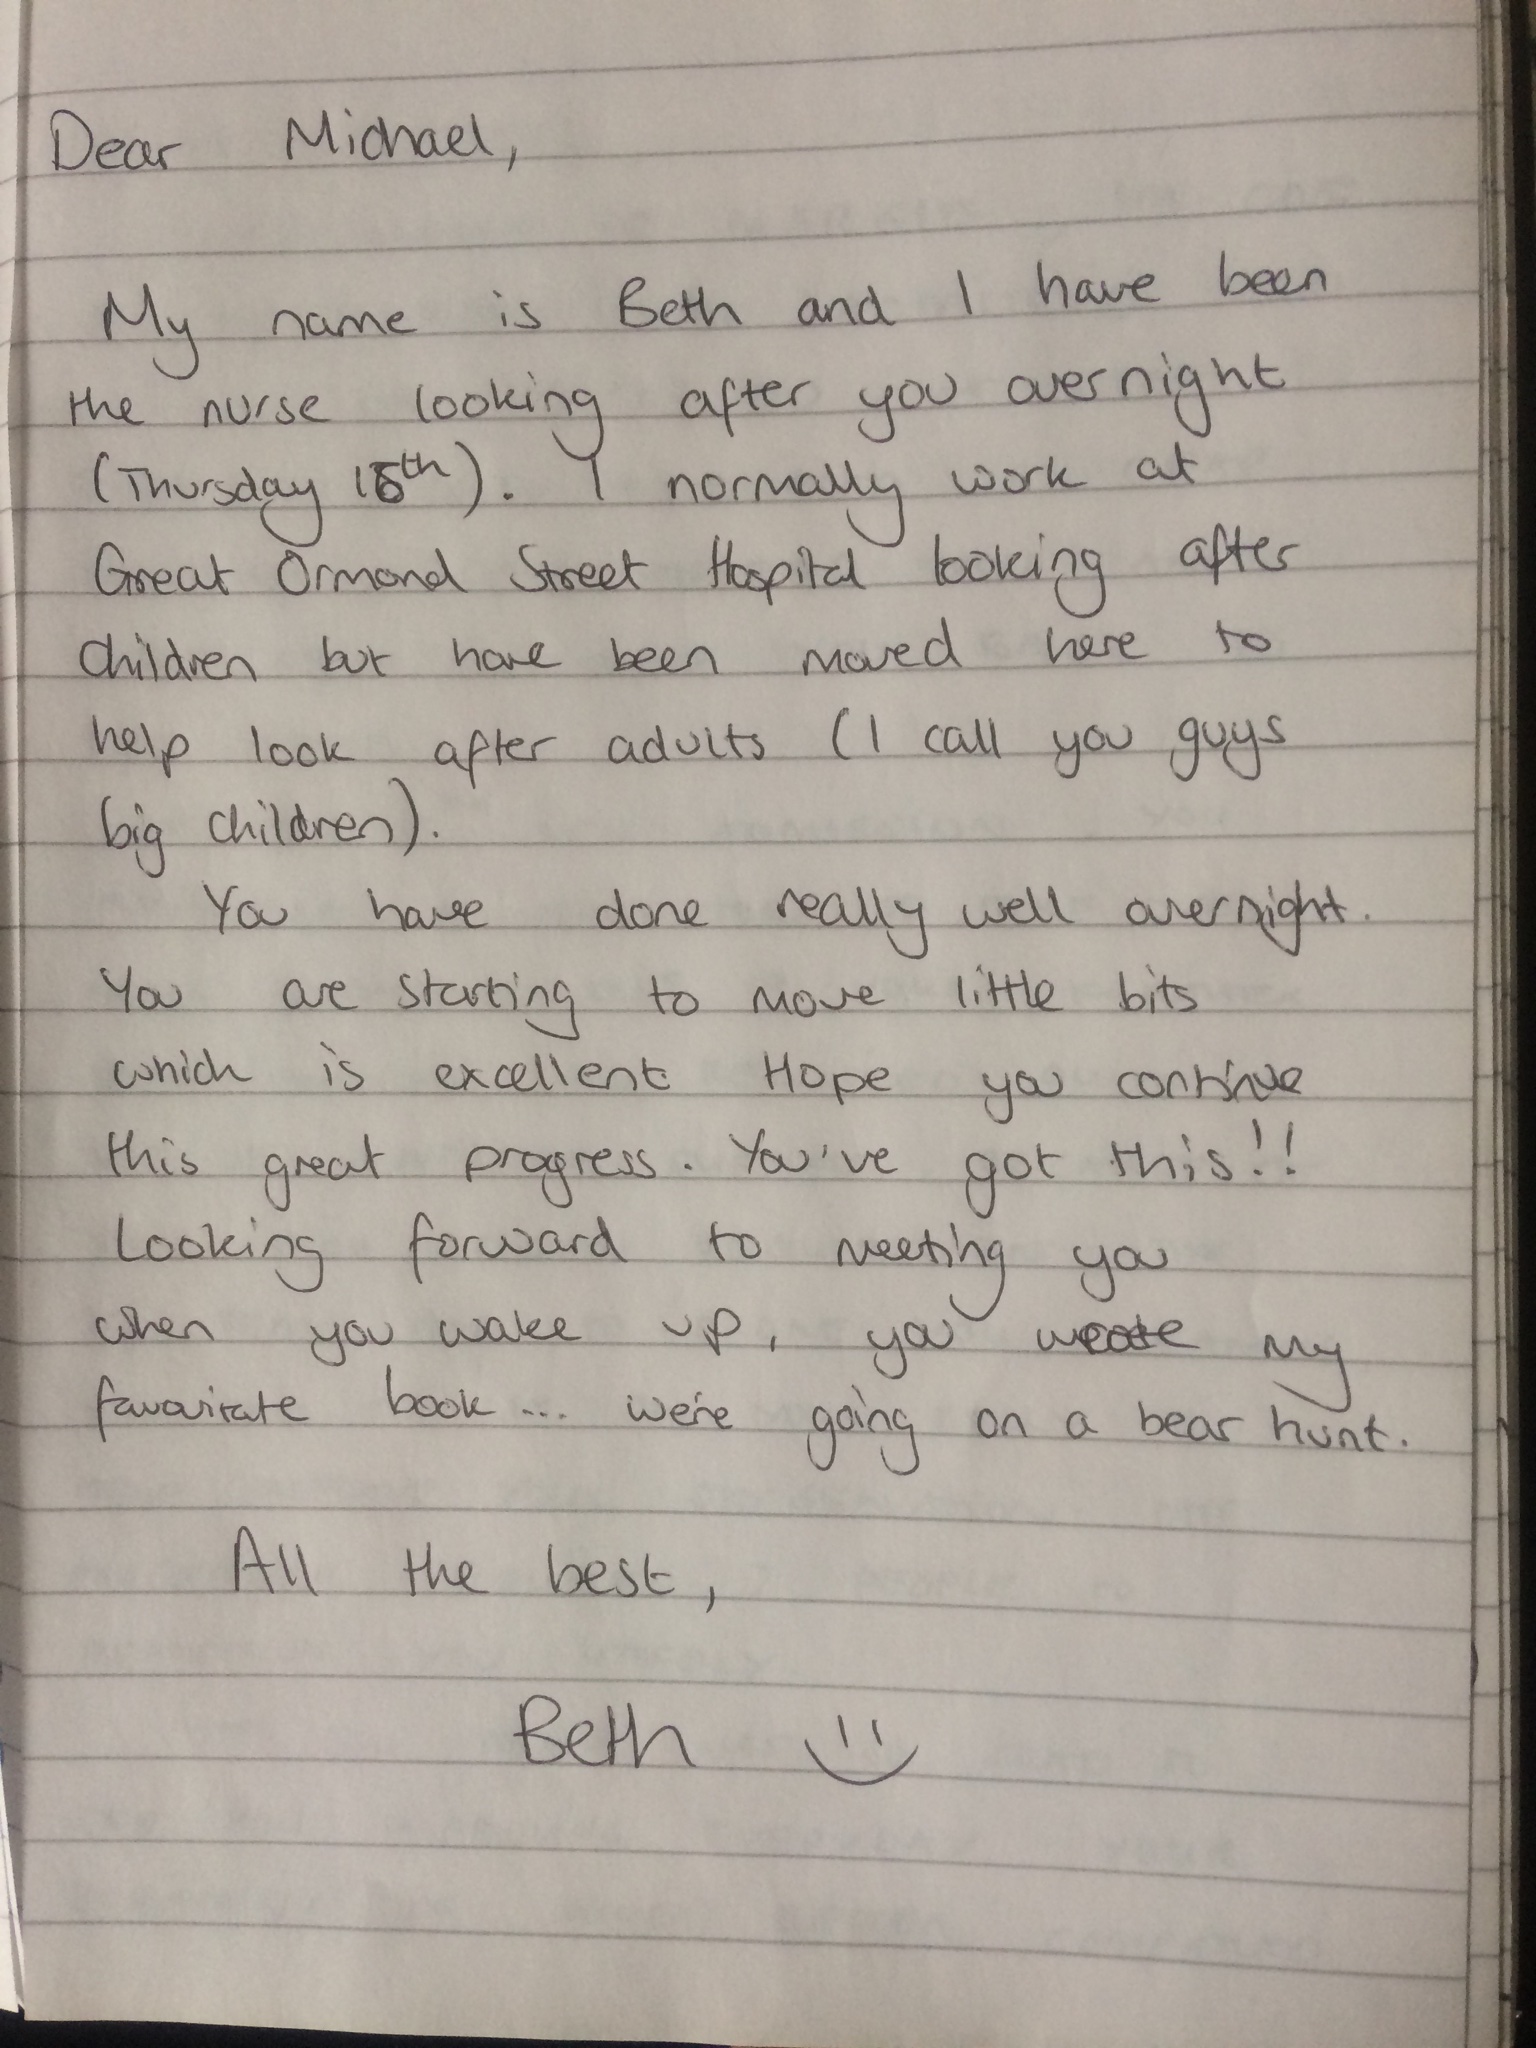 Dear Michael,
My name is Beth and I have been
the nurse looking after you overnight
(Thursday 16th). I normally work at
Great Ormond Street Hospital looking after
children but have been moved here to
help look after adults (I call you guys
big children).
You have done really well overnight.
You are starting to move little bits
which is excellent Hope you continue
this great progress. You've got this!!
Looking forward to meeting you
when you wake up, you wrote my
favourate book... we're going on a bear hunt.
All the best,
Beth